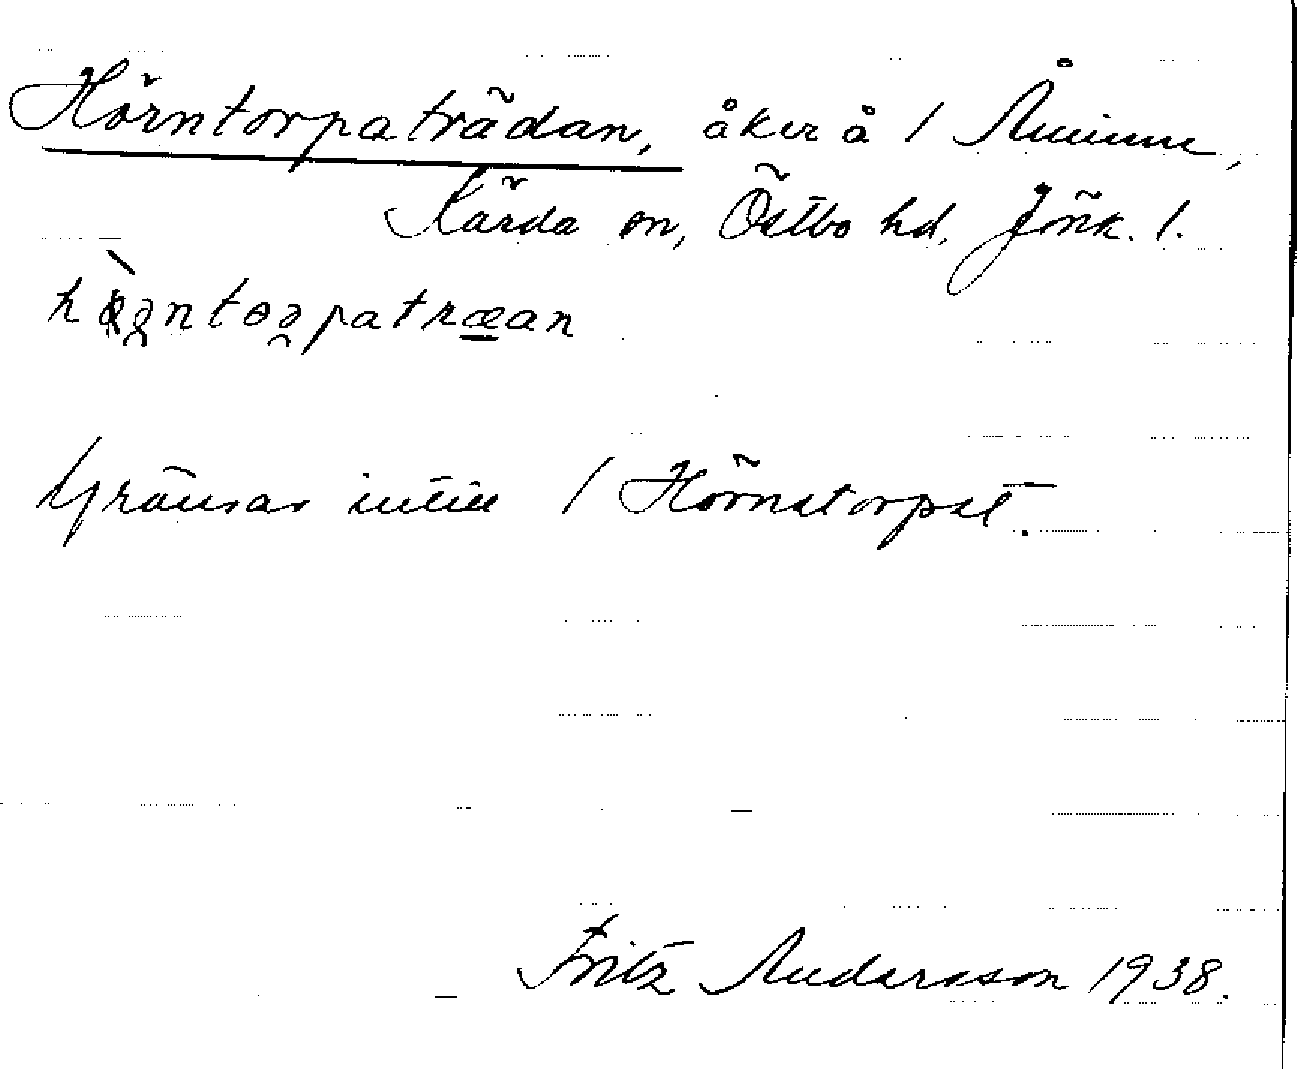 Hörntorpaträdan, åker å / Åminne,
Kärda sn, Östbo hd, Jönk. l.
hörntorpatræan
Gränsar intill / Hörnstorpet.
Fritz Andersson 1938.